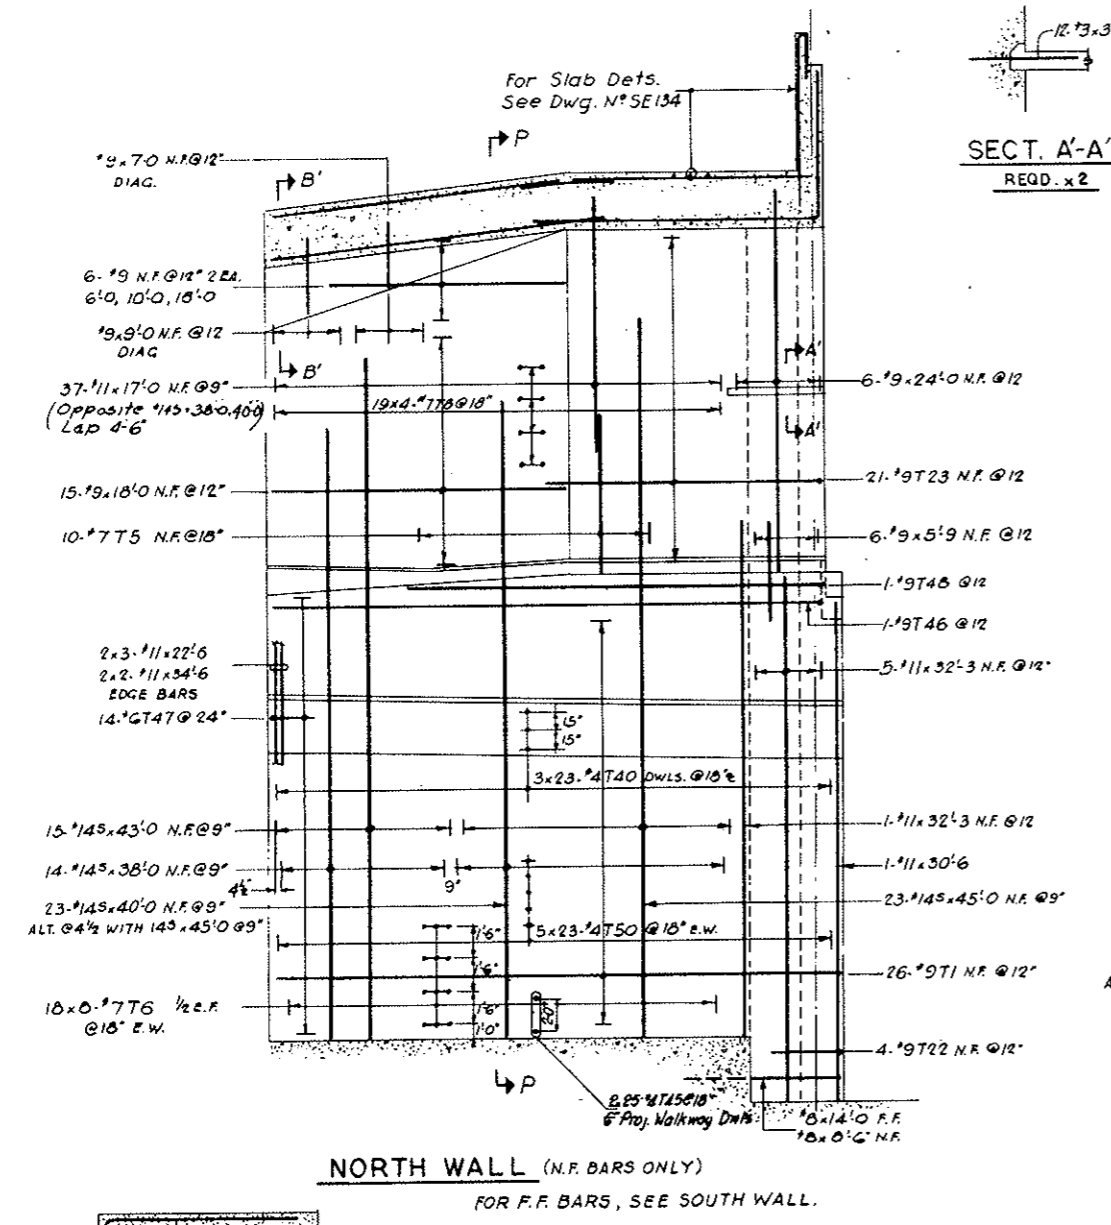 12-#3x3
For Slab Dets.
See Dwg. Nº SE134
P
SECT. A'-A'
REQD. x 2
#9x7-0 N.F.@12"
DIAG.
B'
6-#9 N.F.@12" 2 EA.
6'-0, 10'-0, 18'-0
#9x9'-0 N.F.@12
DIAG
B'
A'
37-#11x17'-0 N.F.@9"
(Opposite #14S-38-0, 40-0)
Lap 4-6"
19x4-#7T8@18"
6-#9x24'-0 N.F.@12
A'
15-#9x18'-0 N.F.@12"
21-#9T23 N.F.@12
10-#7T5 N.F.@18"
6-#9x5'-9 N.F.@12
1-#9T48 @12
1-#9T46 @12
2x3-#11x22'-6
2x2-#11x34'-6
EDGE BARS
5-#11x32'-3 N.F.@12"
14-#6T47@24"
15"
15"
3x23-#4T40 DWLS.@18"
15-#14Sx43'-0 N.F.@9"
1-#11x32'-3 N.F.@12
14-#14Sx38'-0 N.F.@9"
1-#11x30'-6
4½"
9"
23-#14Sx40'-0 N.F.@9"
ALT.@4½ WITH 14Sx45'-0@9"
23-#14Sx45'-0 N.F.@9"
5x23-#4T50 @18" E.W.
1'6"
1'6"
26-#9T1 N.F.@12"
18x8-#7T6 ½ E.F.
@18" E.W.
1'6"
1'0"
2'0"
A
4-#9T22 N.F.@12"
P
Proj. Walkway Dwls.
#8x14'-0 F.F.
#8x8'-6" N.F.
NORTH WALL (N.F. BARS ONLY)
FOR F.F. BARS, SEE SOUTH WALL.